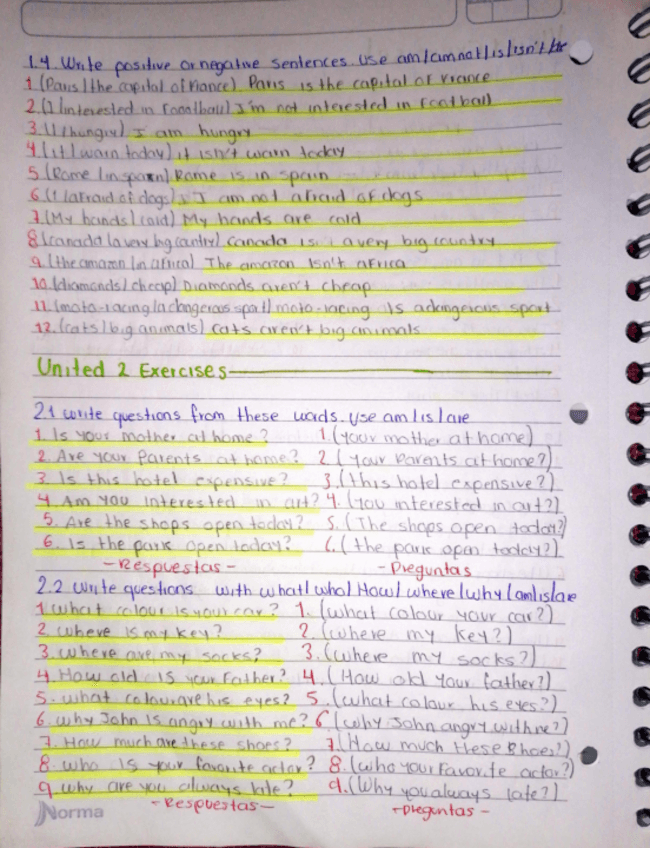 1.4 Write positive or negative sentences. Use am/am not/is/isn't/are
1 (Paris/the capital of France) Paris is the capital of France
2.(I/interested in football) I'm not interested in football
3.(I/hungry) I am hungry
4.(it/warn today) it isn't warn today
5.(Rome/in spain) Rome is in spain
6.(I/afraid of dogs) I am not afraid of dogs
7.(My hands/cold) My hands are cold
8.(canada/a very big contry) canada is a very big country
9.(the amazon/in africa) The amazon isn't africa
10.(diamonds/cheap) Diamonds aren't cheap
11.(moto-racing/a dangerous sport) moto-racing is a dangerous sport
12.(cats/big animals) cats aren't big animals
United 2 Exercises
2.1 write questions from these words. Use am/is/are
1. Is your mother at home? 1.(your mother at home)
2. Are your Parents at home? 2.(your Parents at home?)
3. Is this hotel expensive? 3.(this hotel expensive?)
4. Am you interested in art? 4.(you interested in art?)
5. Are the shops open today? 5.(The shops open today?)
6. Is the park open today? 6.(the park open today?)
-Respuestas- -Preguntas
2.2 write questions with what/who/How/where/why/am/is/are
1 what colour is your car? 1.(what colour your car?)
2. where is my key? 2.(where my key?)
3. where are my socks? 3.(where my socks?)
4. How old is your father? 4.(How old your father?)
5. what colour are his eyes? 5.(what colour his eyes?)
6. why John is angry with me? 6(why John angry with me?)
7. How much are these shoes? 7.(How much these shoes?)
8. who is your favorite actor? 8.(who your favorite actor?)
9 why are you always late? 9.(Why you always late?)
-Respuestas- -preguntas-
Norma